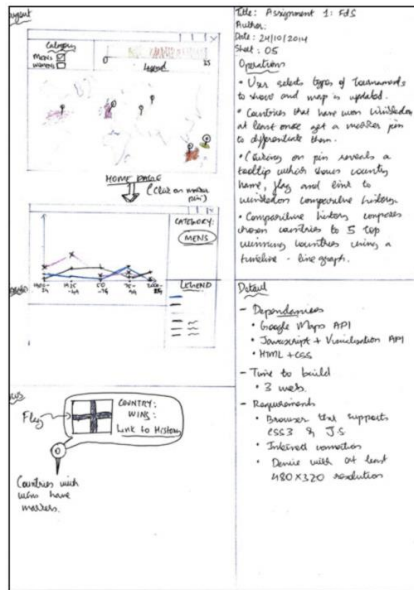 Layout
Category
MENS
WOMENS
0
25
Legend
HOME PAGE
(Click on marker
pin)
CATEGORY:
MENS
LEGEND
Focus
Flag
COUNTRY:
WINS:
Link to History
Countries with
wins have
markers.
Title: Assignment 1: FdS
Author:
Date: 24/10/2014
Sheet: 05
Operations
• User selects types of Tournaments
to show and map is updated.
• Countries that have won Wimbledon
at least once get a marker pin
to differentiate them.
• Clicking on pin reveals a
tooltip which shows country
name, flag and link to
Wimbledon comparative history.
• Comparitive history compares
chosen countries to 5 top
winning countries using a
timeline - line graph.
Detail
- Dependancies
• Google Maps API
• Javascript + Visualisation API
• HTML + CSS
- Time to build
• 3 weeks.
- Requirements
• Browser that supports
CSS3 & JS
• Internet connection
• Device with at least
480 x 320 resolution